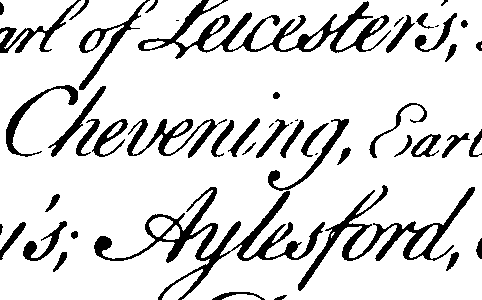 Earl of Leicester's;
Chevening, Earl
's; Aylesford,